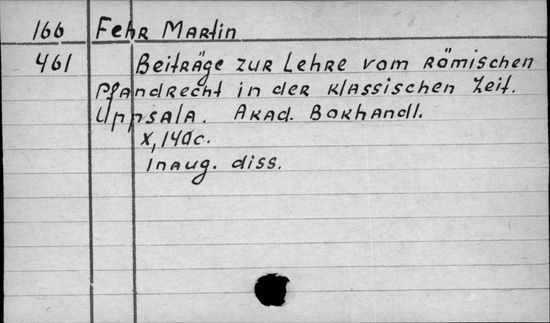 166 Fehr Martin
461 Beiträge zur Lehre vom Römischen
Pfandrecht in der klassischen Zeit.
Uppsala. Akad. Bokhandl.
X, 140c.
Inaug. diss.